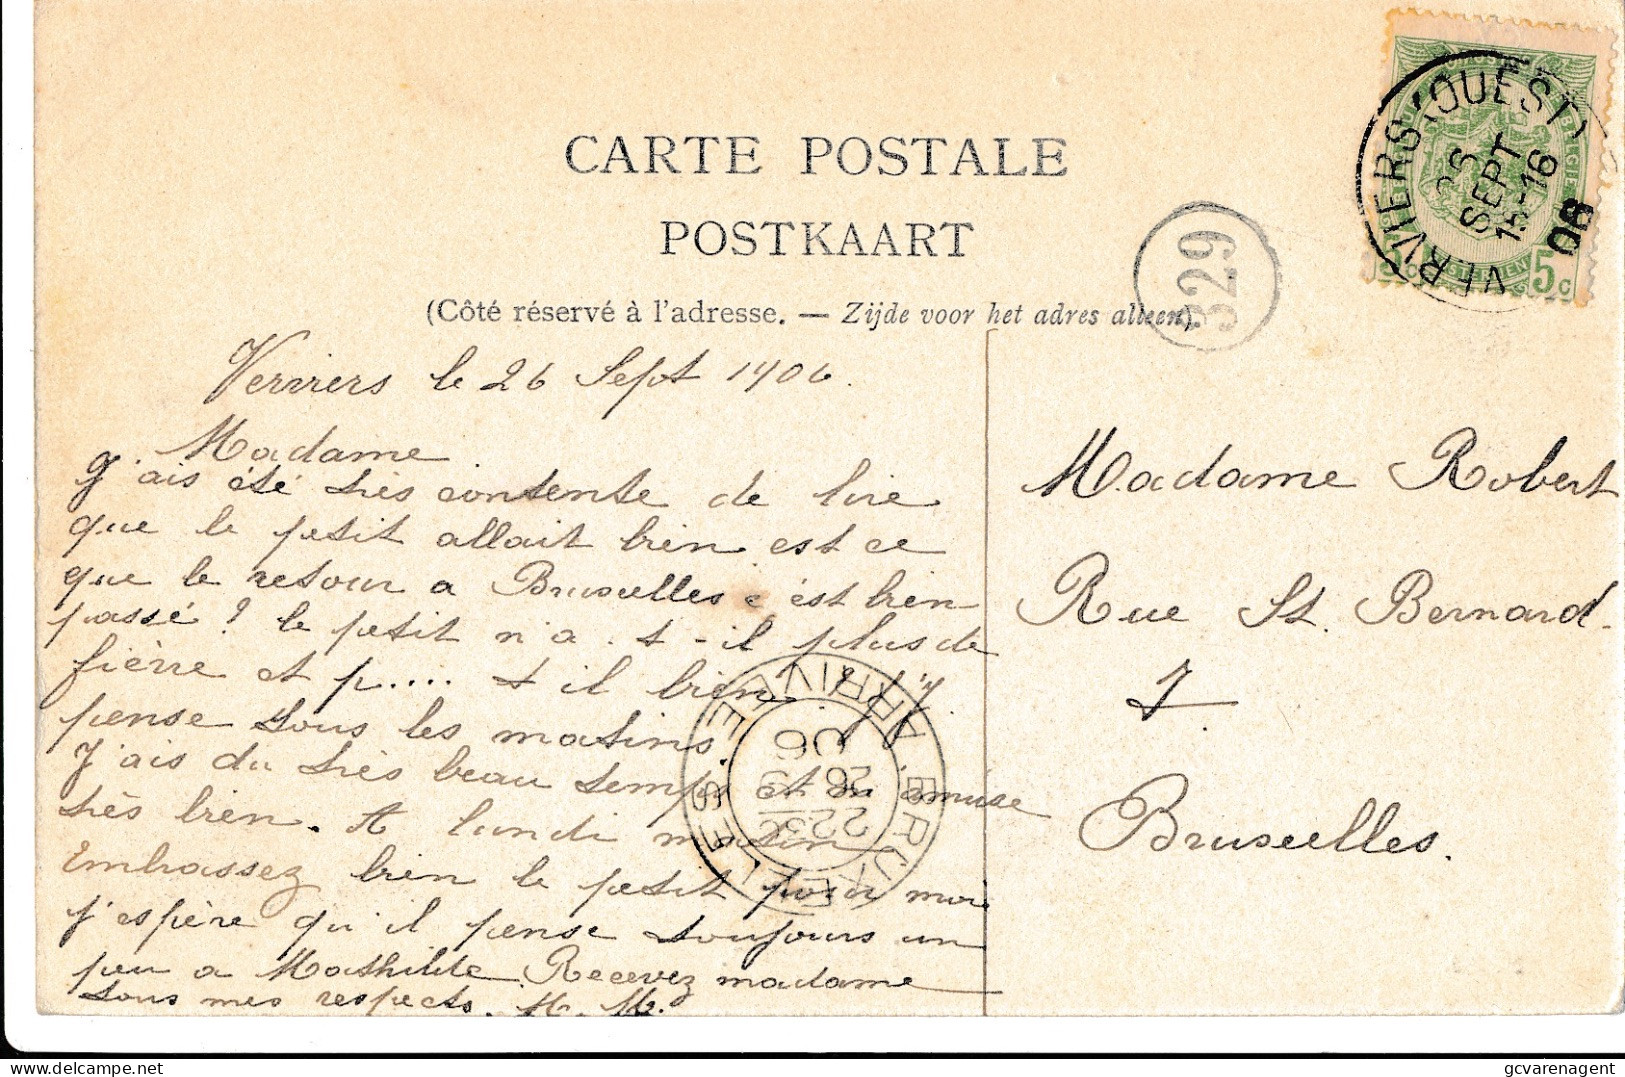 CARTE POSTALE
POSTKAART
(Côté réservé à l'adresse. — Zijde voor het adres alleen).
329
VERVIERS (OUEST)
26
SEPT
15-16
06
BELGIE
5c
Verviers le 26 Sept 1906.
Madame
J'ais été très contente de lire
que le petit allait bien est ce
que le retour a Bruxelles c'est bien
passé ? le petit n'a . t - il plus de
fièrre et p.... t il bien ? j'y
pense tous les matins.
J'ais du très beau temps et m'amuse
très bien. A lundi matin
Embrassez bien le petit pour moi
j'espère qu'il pense toujours un
peu a Mathilde. Recevez madame
tous mes respects. M. M.
BRUXELLES ARRIVEE
Madame Robert
Rue St. Bernard.
7.
Bruxelles.
gcvarenagent